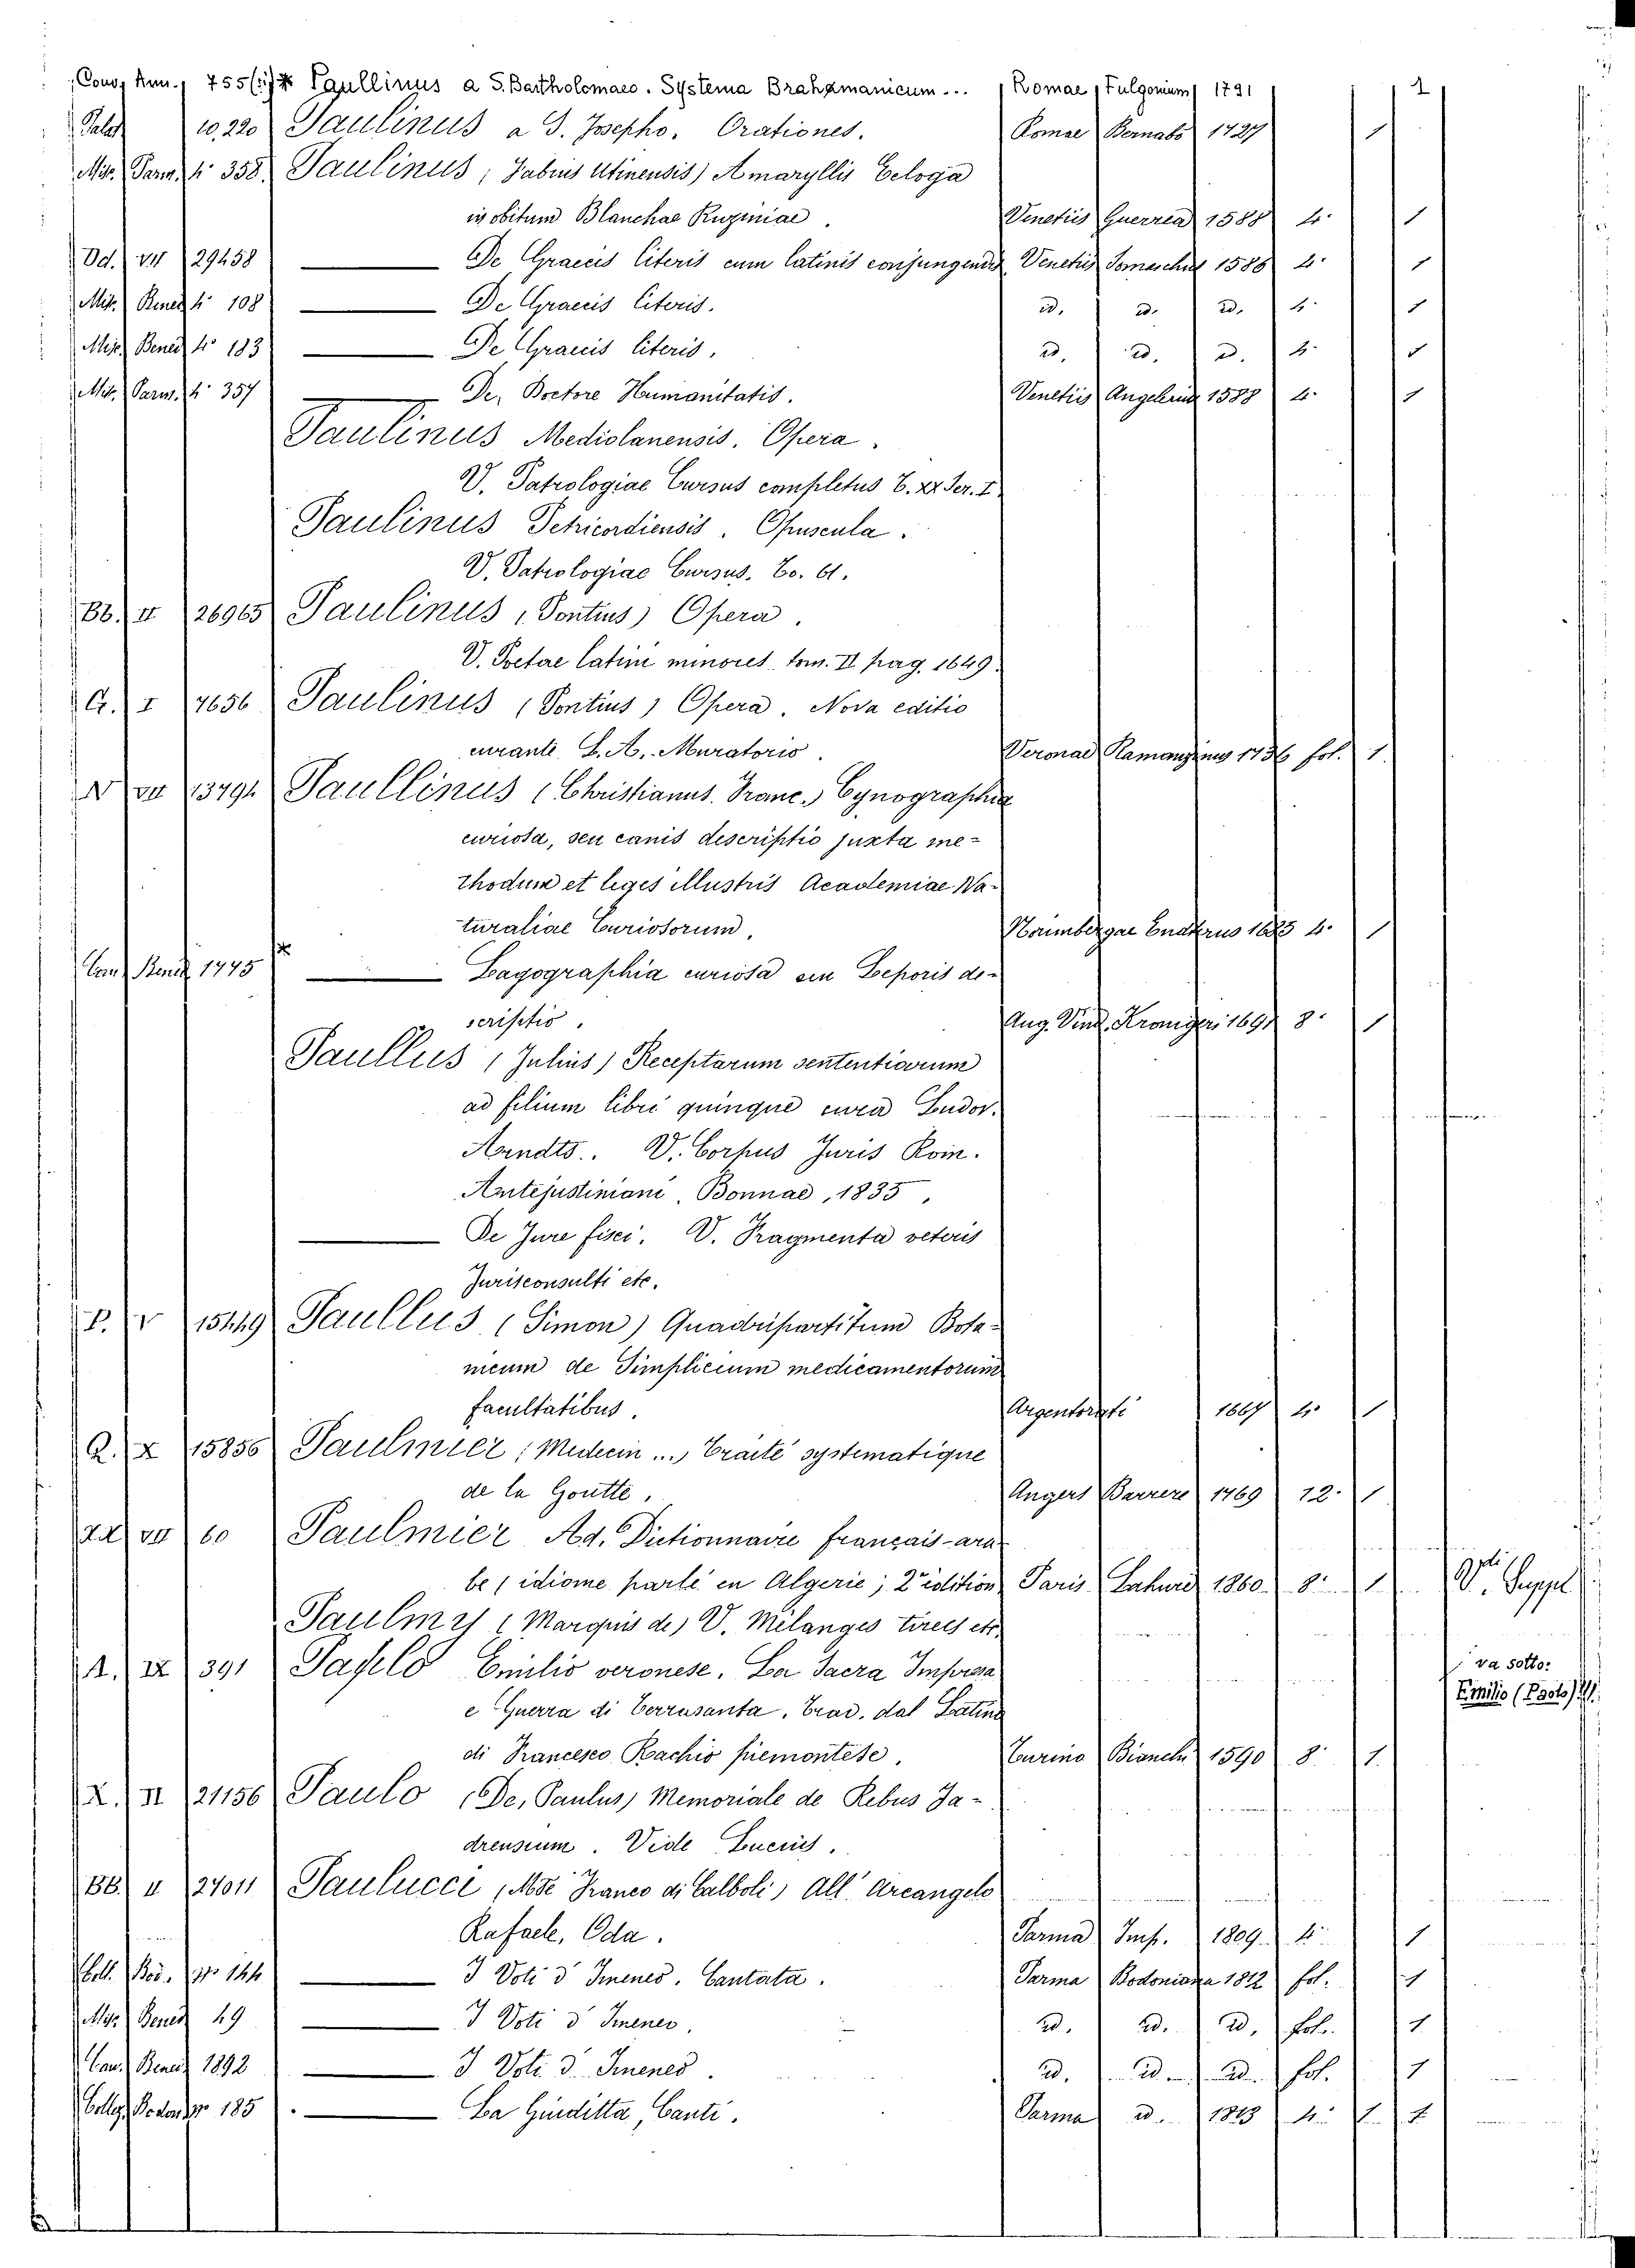 Conv. Ann. 755 Paullinus a S. Bartholomaeo. Systema Brahmanicum... Romae Fulgonium 1791 1
Palat 10,220 Paulinus a S. Josepho. Orationes. Romae Bernabò 1727 1
Misc. Parm. 4° 358 Paulinus (Fabius Utinensis) Amaryllis Ecloga
in obitum Blanchae Ruginiae. Venetiis Guerrea 1588 4° 1
Dd. VII 29458 — De Graecis literis cum latinis conjungendis Venetiis Somaschus 1586 4° 1
Misc. Bened. 4° 108 — De Graecis literis. id. id. id. 4° 1
Misc. Bened. 4° 183 — De Graecis literis. id. id. id. 4° 1
Misc. Parm. 4° 357 — De Doctore Humanitatis. Venetiis 1588 4° 1
Paulinus Mediolanensis. Opera.
V. Patrologiae Cursus completus T. XX Ser. I
Paulinus Petricordiensis. Opuscula.
V. Patrologiae Cursus. To. 61.
Bb. II 26965 Paulinus (Pontius) Opera.
V. Poetae latini minores tom. II pag. 1649.
G. I 7656 Paulinus (Pontius) Opera. Nova editio
curante L. A. Muratorio. Veronae 1736 fol. 1
N VII 13794 Paullinus (Christianus. Franc.) Cynographia
curiosa, seu canis descriptio juxta me-
thodum et leges illustris Academiae Na-
turaliae Curiosorum. Norimbergae Endterus 1685 4° 1
Conv. Bened. 1745 — Lagographia curiosa seu Leporis de-
scriptio. Aug. Vind. Kronigeri 1691 8° 1
Paullus (Julius) Receptarum sententiarum
ad filium libri quinque cura Ludov.
Arndts. V. Corpus Juris Rom.
Antejustiniani. Bonnae, 1835.
— De Jure fisci. V. Fragmenta veteris
Jurisconsulti etc.
P. V 15449 Paullus (Simon) Quadripartitum Bota-
nicum de Simplicium medicamentorum
facultatibus. Argentorati 1667 4° 1
Q. X 15856 Paulmier (Medecin ...) Traité systematique
de la Goutte. Angers Barrere 1769 12° 1
ZZ VII 60 Paulmier Ad. Dictionnaire français-ara-
be (idiome parlé en Algerie; 2e édition Paris Lahure 1860 8° 1 V. Suppl.
Paulmy (Marquis de) V. Mélanges tirees etc.
A. IX 391 Paolo Emilio veronese. La Sacra Impresa
e Guerra di Terrasanta. Trad. dal Latino
di Francesco Rachio piemontese. Tourino Bianchi 1590 8° 1.
va sotto:
Emilio (Paolo)
X. II 21156 Paulo (De, Paulus) Memoriale de Rebus Ja-
drensium. Vide Lucius.
BB. II 27011 Paulucci (Mse Franco di Calboli) All' Arcangelo
Rafaele, Oda. Parma Imp. 1809 4° 1
Coll. Bod. n° 144 — I Voti d'Imeneo. Cantata. Parma Bodoniana 1812 fol. 1
Misc. Bened. 49 — I Voti d'Imeneo. id. id. id. fol. 1
Conv. Bened. 1892 — I Voti d'Imeneo. id. id. id. fol. 1
Collez. Bodon n° 185 — La Giuditta, Canti. Parma id. 1813 4° 1 1